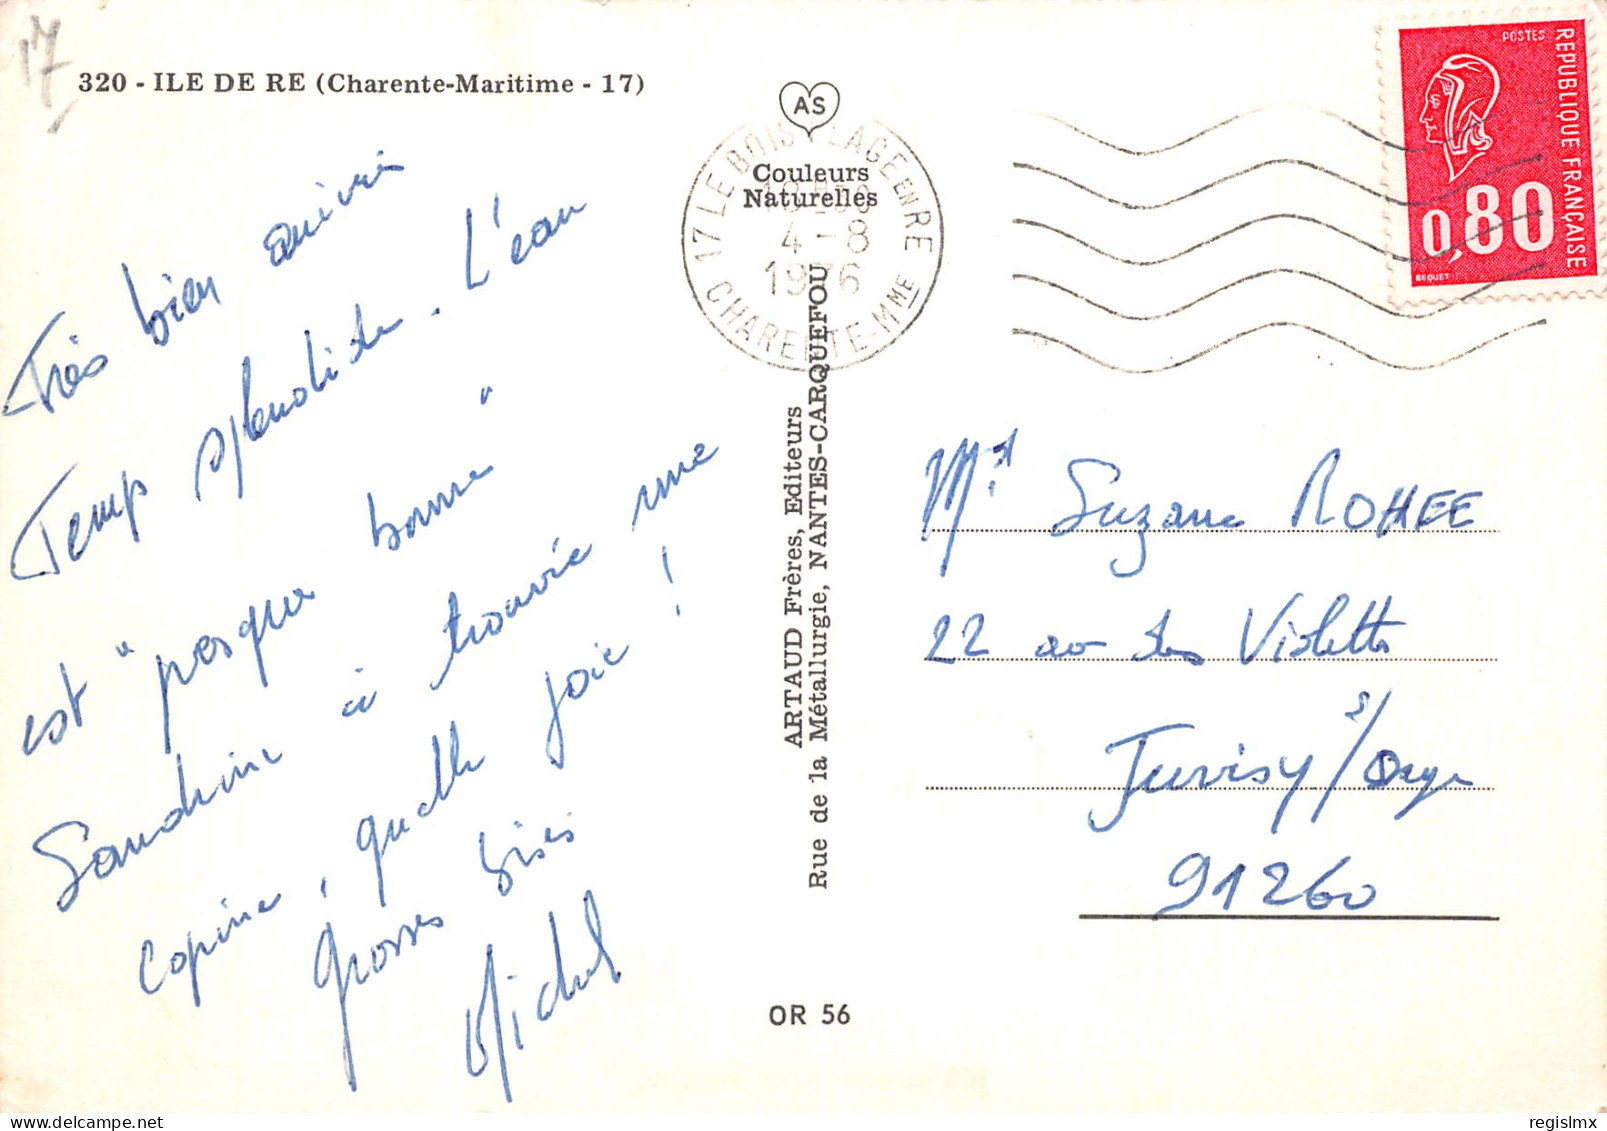 17
320 - ILE DE RE (Charente-Maritime - 17)
AS
Couleurs
Naturelles
17 LE BOIS PLAGE EN RE
4-8
1976
CHARENTE-Mme
POSTES
REPUBLIQUE FRANÇAISE
0,80
BEQUET
Très bien arrivés
Temps splendide. L'eau
est "presque bonne"
Sandrine a trouvé une
copine, quelle joie !
Grosses bises
Michel
ARTAUD Frères, Editeurs
Rue de la Métallurgie, NANTES-CARQUEFOU
Suzane ROHEE
22 av des Violettes
Juvisy s/Orge
91260
OR 56
regislmx